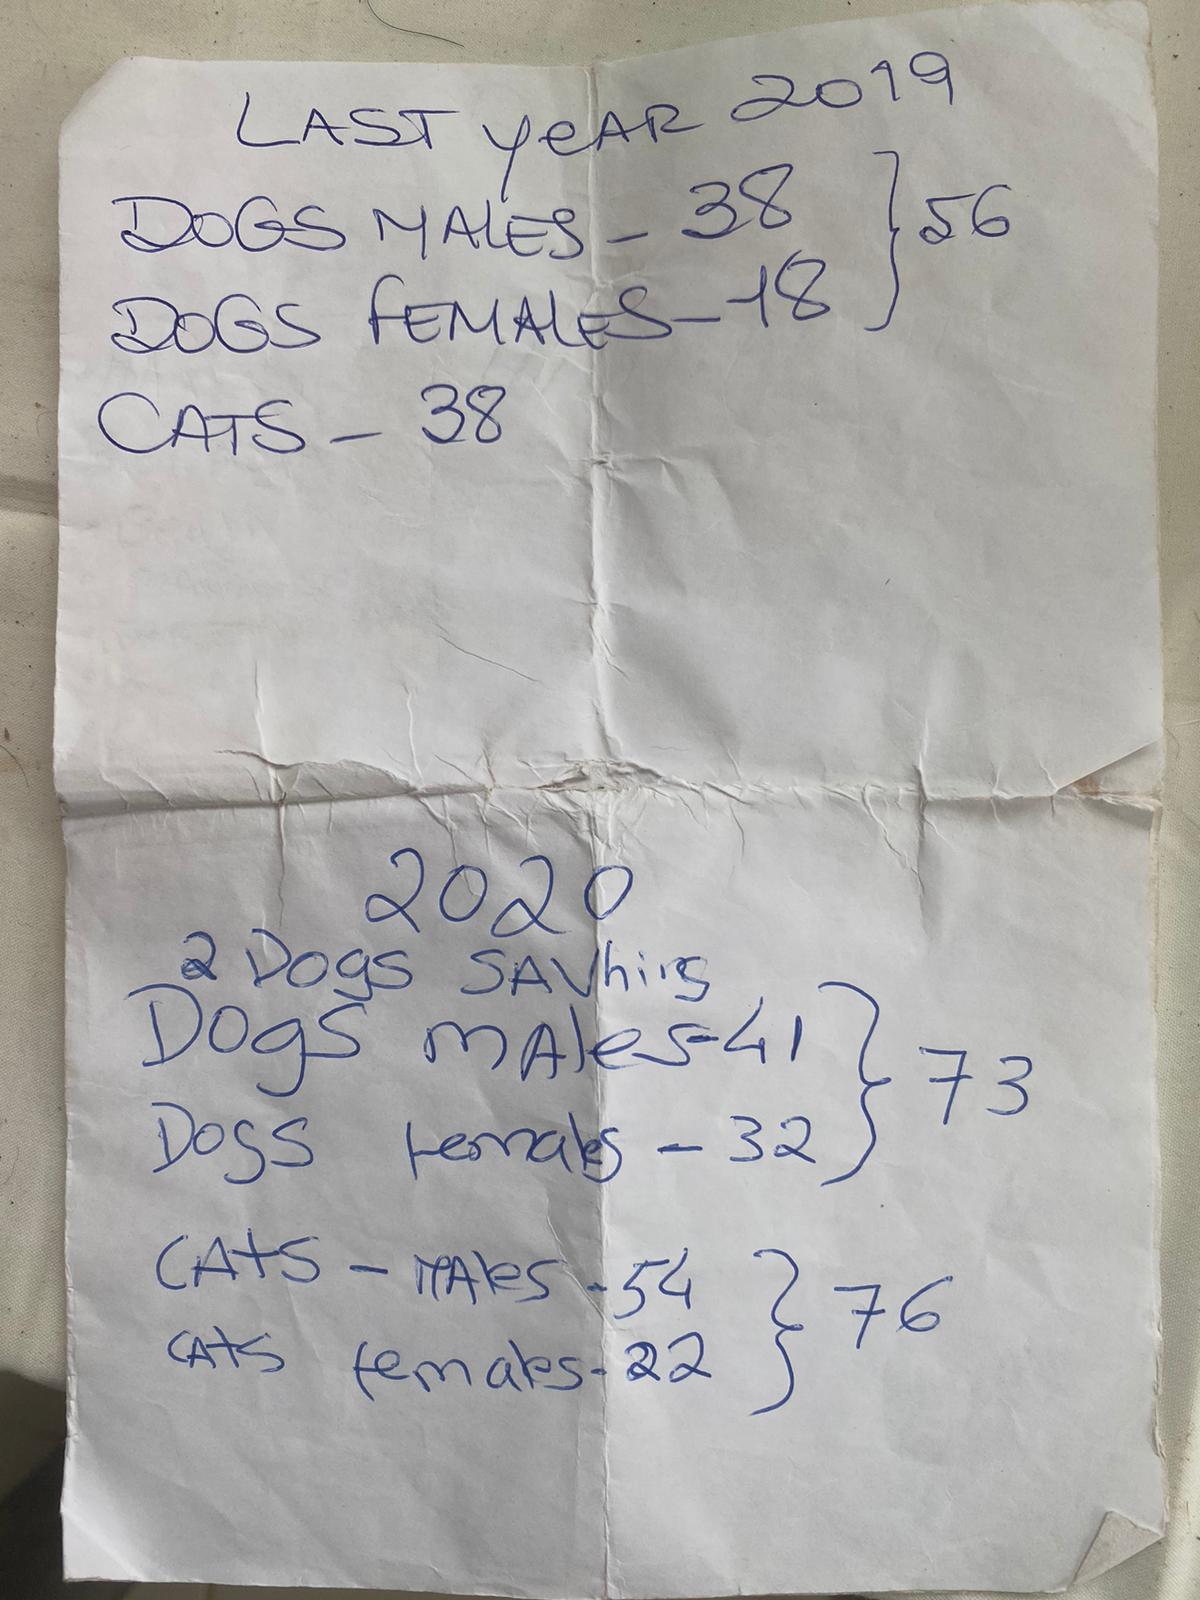 LAST yeAR 2019
DOGS MALES - 38 } 56
DOGS fEMALES - 18
CATS - 38
2020
2 Dogs SAVhirs
Dogs mAles - 41 } 73
Dogs females - 32
CAtS - MAles - 54 } 76
cAts females - 22